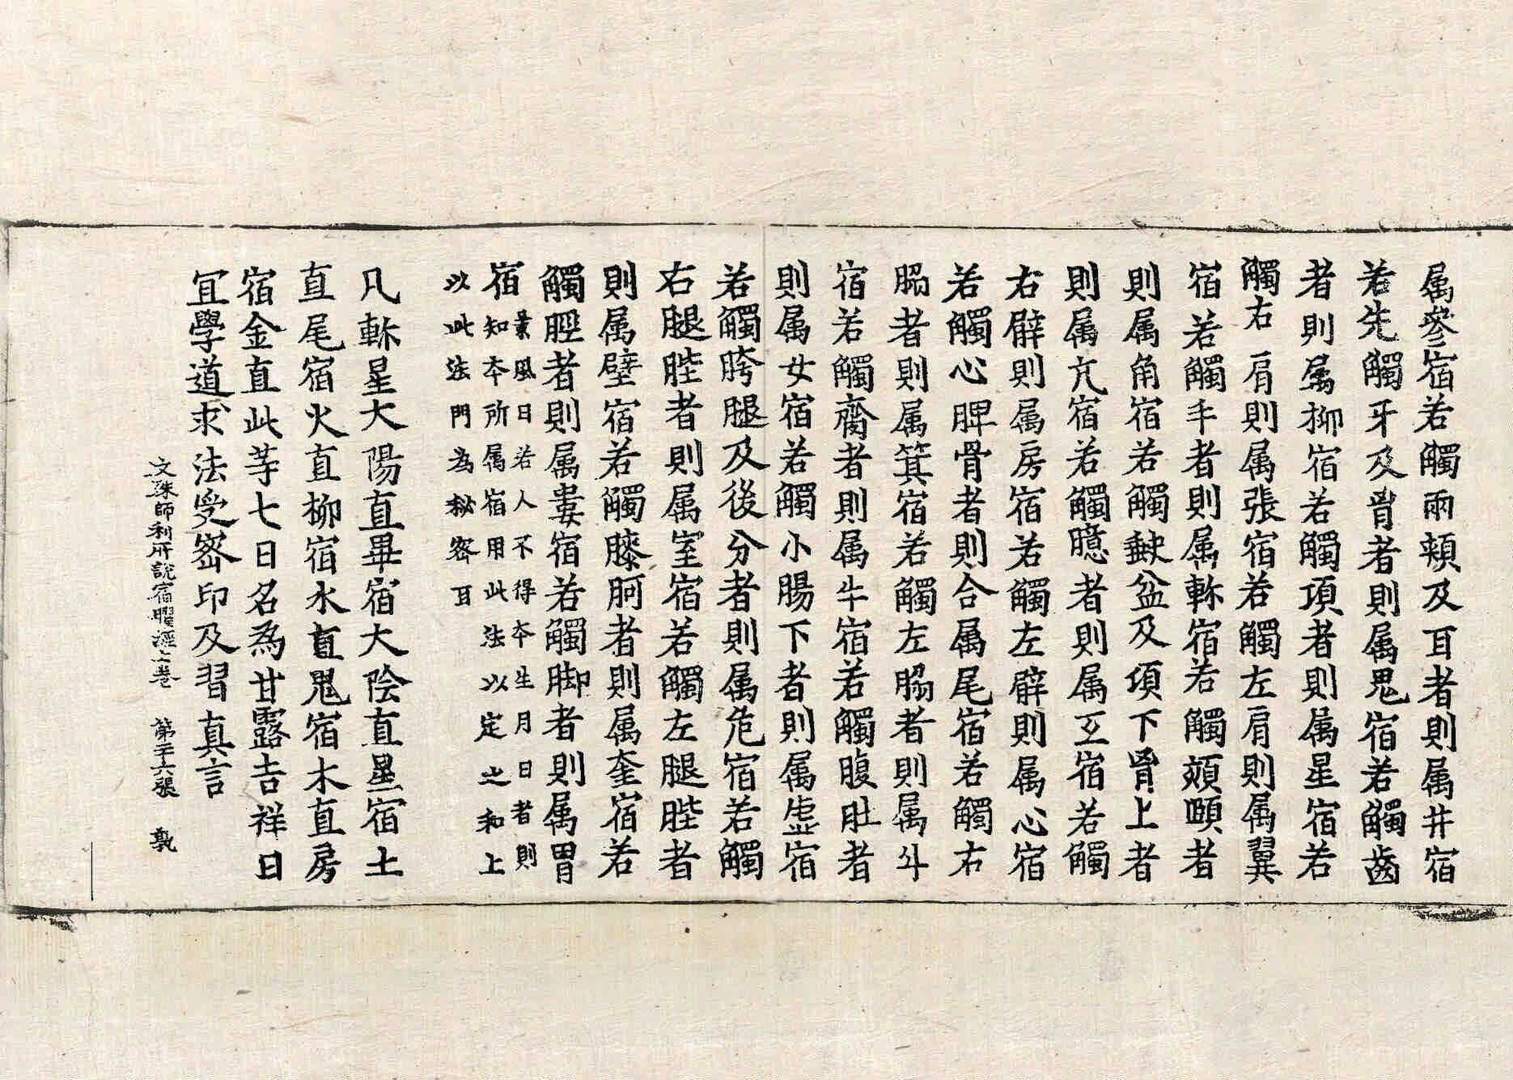 属參宿若觸兩頰及耳者則属井宿
若先觸牙及骨者則属鬼宿若觸齒
者則属柳宿若觸項者則属星宿若
觸右肩則属張宿若觸左肩則属翼
宿若觸手者則属軫宿若觸頰頤者
則属角宿若觸䀇盆及項下胷上者
則属亢宿若觸臆者則属互宿若觸
右臂則属房宿若觸左臂則属心宿
若觸心脾骨者則合属尾宿若觸右
脇者則属箕宿若觸左脇者則属斗
宿若觸齎者則属牛宿若觸腹肚者
則属女宿若觸小腸下者則属虚宿
若觸胯腿及後分者則属危宿若觸
右腿䏶者則属室宿若觸左腿䏶者
則属壁宿若觸膝胻者則属奎宿若
觸脛者則属婁宿若觸脚者則属胃
宿景風日若人不得本生月日者則
知本所属宿用此法以定之和上
以此法門為秘密耳
凡軫星大陽直畢宿大陰直星宿土
直尾宿火直柳宿水直鬼宿木直房
宿金直此等七日名為甘露吉祥日
宜學道求法受密印及習真言
文殊師利所說宿曜經上卷 第二十六張 敦